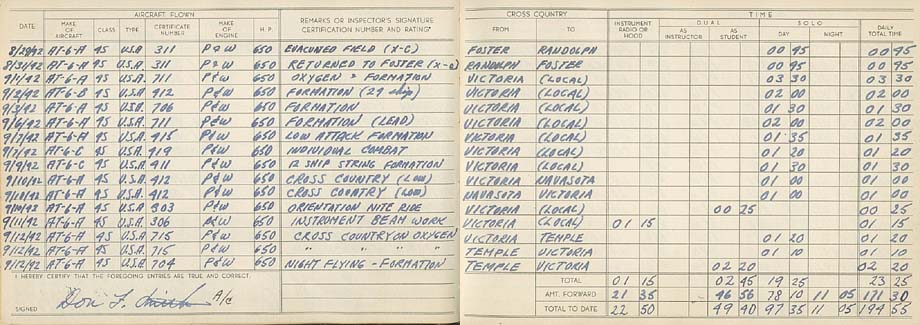 AIRCRAFT FLOWN
DATE MAKE OF AIRCRAFT CLASS TYPE CERTIFICATE NUMBER MAKE OF ENGINE H.P. REMARKS OR INSPECTOR'S SIGNATURE CERTIFICATION NUMBER AND RATING*
8/28/42 AT-6-A 4S U.S.A 311 P & W 650 EVACUATED FIELD (X-C)
8/31/42 AT-6-A 4S U.S.A 311 P & W 650 RETURNED TO FOSTER (X-C)
9/1/42 AT-6-A 4S U.S.A. 711 P & W 650 OXYGEN & FORMATION
9/2/42 AT-6-B 4S U.S.A 912 P & W 650 FORMATION (24 ship)
9/3/42 AT-6-A 4S U.S.A. 706 P & W 650 FORMATION
9/6/42 AT-6-A 4S U.S.A. 711 P & W 650 FORMATION (LEAD)
9/7/42 AT-6-A 4S U.S.A. 415 P & W 650 LOW ATTACK FORMATION
9/7/42 AT-6-C 4S U.S.A. 919 P & W 650 INDIVIDUAL COMBAT
9/9/42 AT-6-C 4S U.S.A. 911 P & W 650 12 SHIP STRING FORMATION
9/10/42 AT-6-A 4S U.S.A. 412 P & W 650 CROSS COUNTRY (LOW)
9/10/42 AT-6-A 4S U.S.A. 412 P & W 650 CROSS COUNTRY (LOW)
AT-6-A 4S U.S.A. 303 P & W 650 ORIENTATION NITE RIDE
9/11/42 AT-6-A 4S U.S.A. 306 P & W 650 INSTRUMENT BEAM WORK
9/12/42 AT-6-A 4S U.S.A. 715 P & W 650 CROSS COUNTRY ON OXYGEN
9/12/42 AT-6-A 4S U.S.A. 715 P & W 650 " " " "
9/12/42 AT-6-A 4S U.S.A. 704 P & W 650 NIGHT FLYING - FORMATION
I HEREBY CERTIFY THAT THE FOREGOING ENTRIES ARE TRUE AND CORRECT.
SIGNED Don L. A/C
CROSS COUNTRY TIME
FROM TO INSTRUMENT RADIO OR HOOD DUAL AS INSTRUCTOR AS STUDENT SOLO DAY NIGHT DAILY TOTAL TIME
FOSTER RANDOLPH 00 45 00 45
RANDOLPH FOSTER 00 45 00 45
VICTORIA (LOCAL) 03 30 03 30
VICTORIA (LOCAL) 02 00 02 00
VICTORIA (LOCAL) 01 30 01 30
VICTORIA (LOCAL) 02 00 02 00
VICTORIA (LOCAL) 01 35 01 35
VICTORIA (LOCAL) 01 20 01 20
VICTORIA (LOCAL) 01 30 01 30
VICTORIA NAVASOTA 01 00 01 00
NAVASOTA VICTORIA 01 00 01 00
VICTORIA (LOCAL) 00 25 00 25
VICTORIA (LOCAL) 01 15 01 15
VICTORIA TEMPLE 01 20 01 20
TEMPLE VICTORIA 01 10 01 10
TEMPLE VICTORIA 02 20 02 20
TOTAL 01 15 02 45 19 25 23 25
AMT. FORWARD 21 35 46 56 78 10 11 05 171 30
TOTAL TO DATE 22 50 49 40 97 35 11 05 194 55